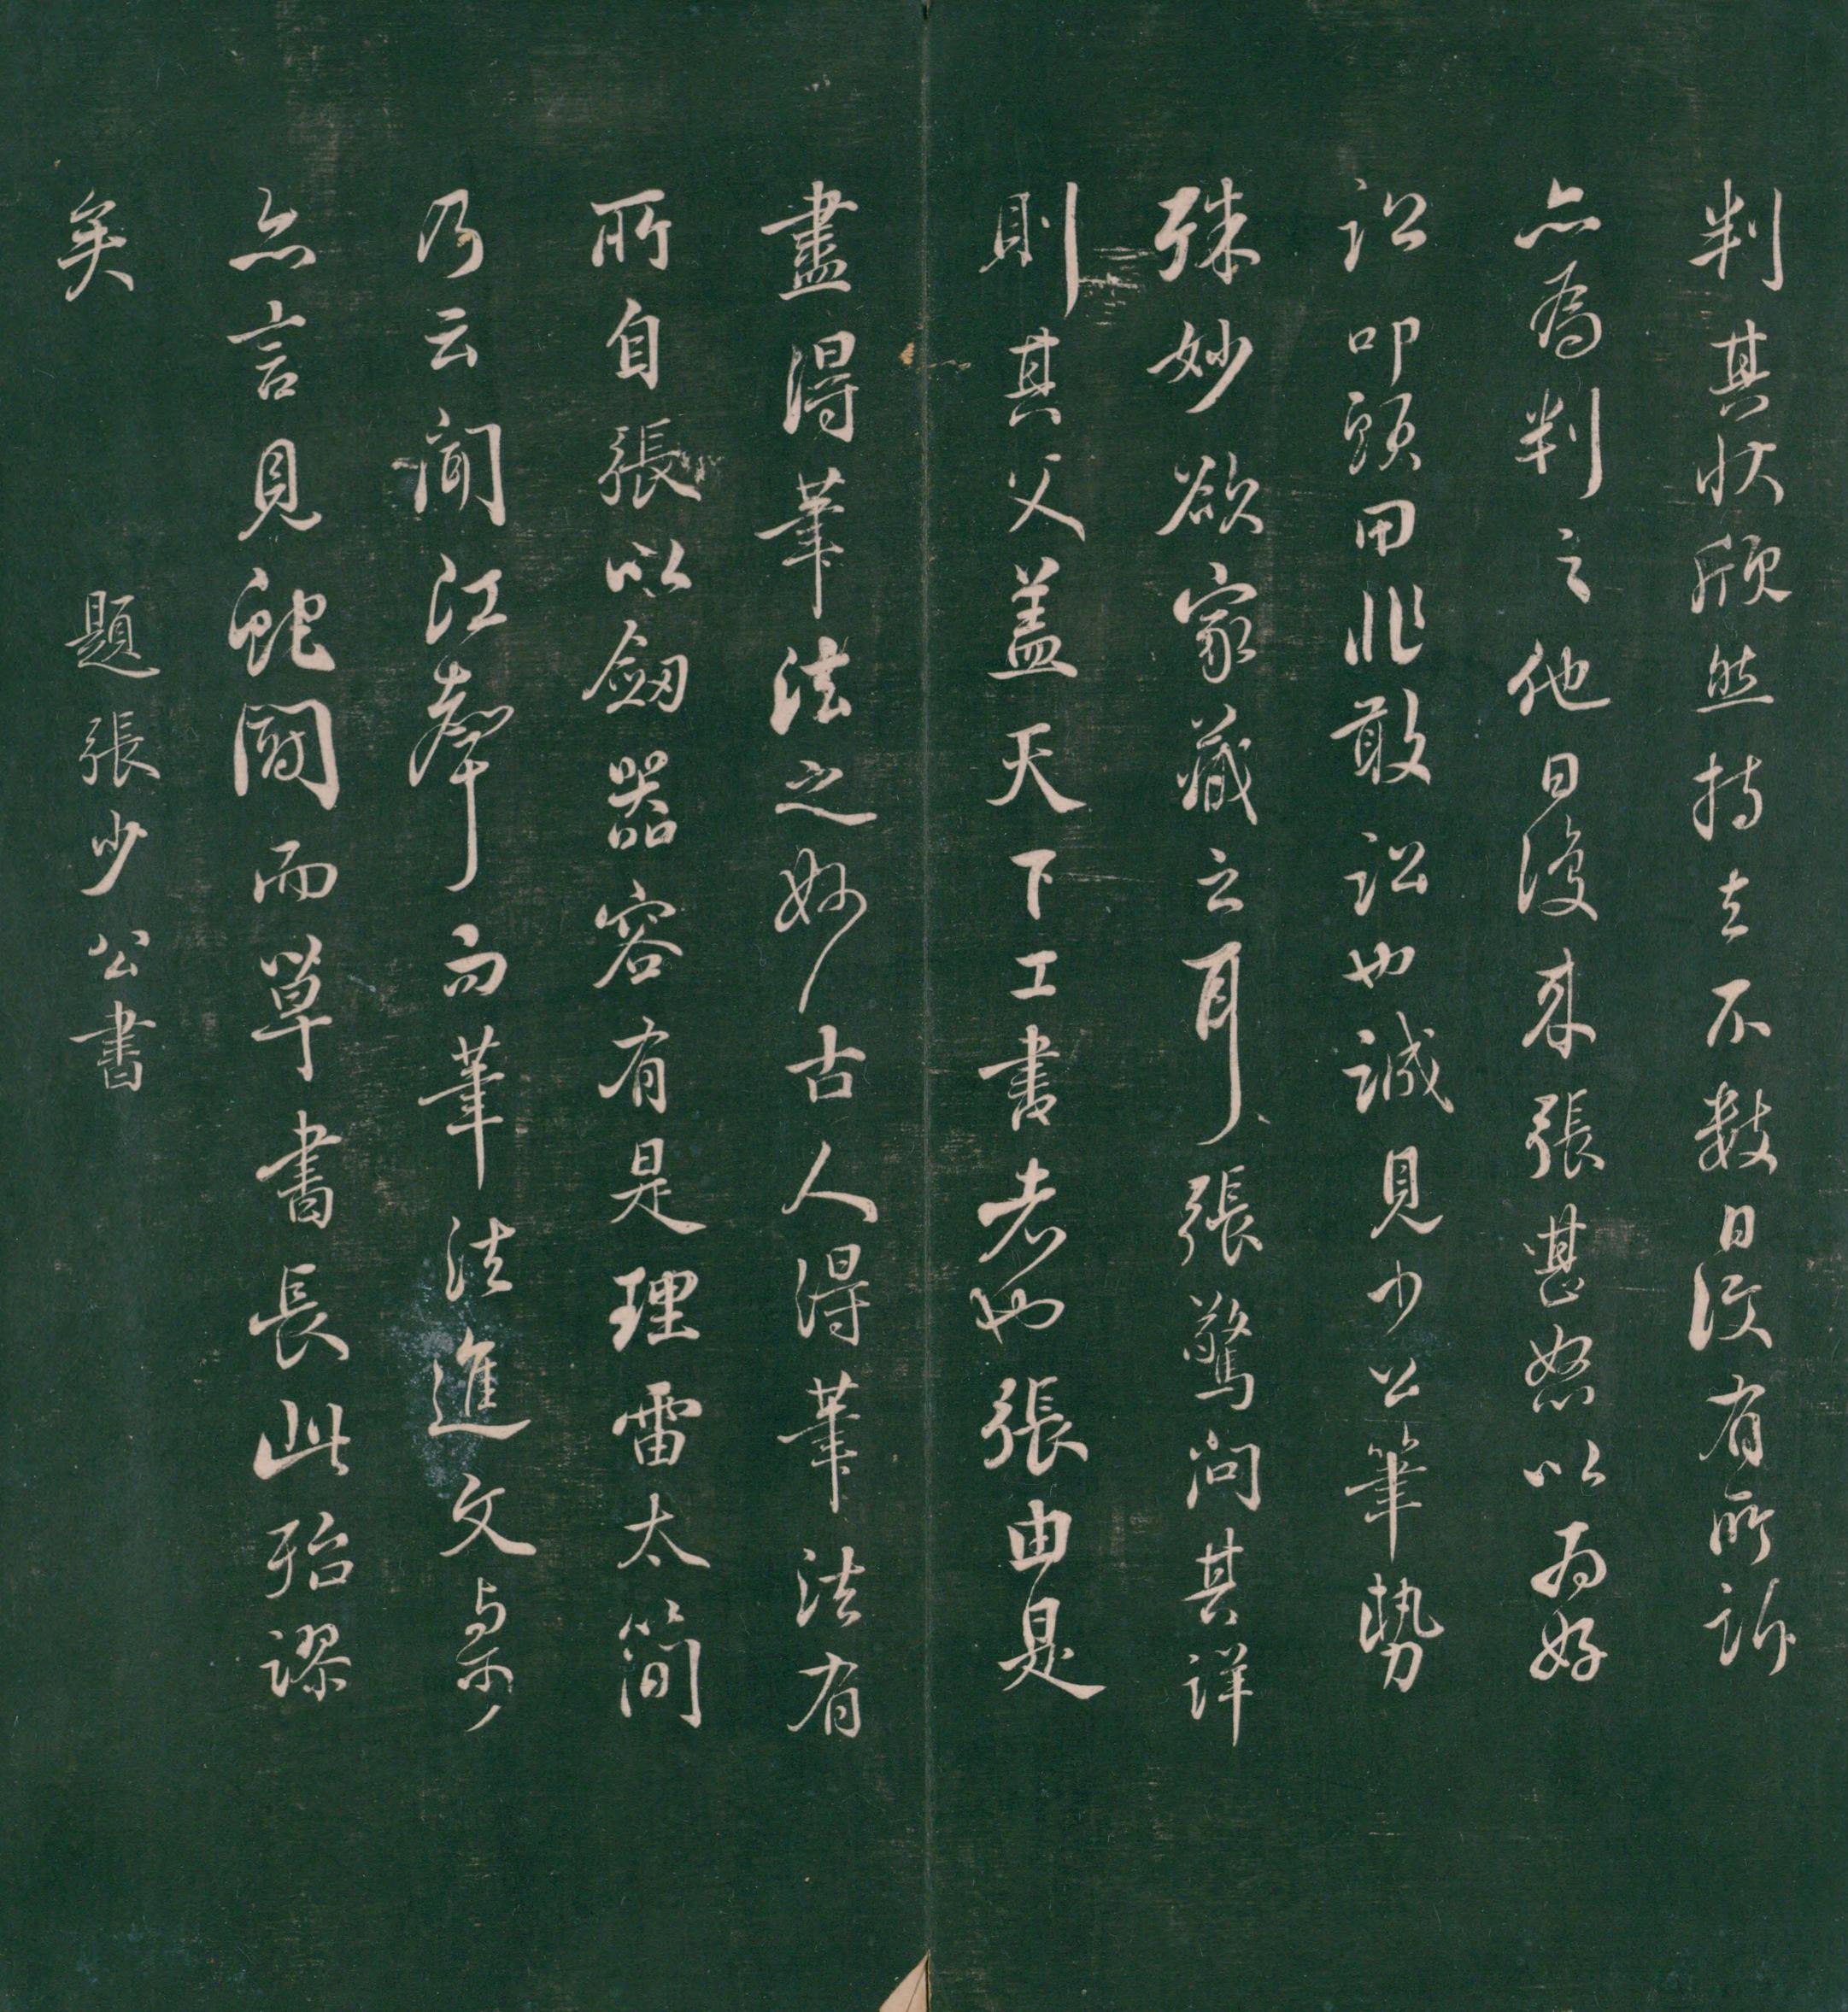 判其狀欣然持去不數日復有所訴
亦為判之他日復來張甚怒以為好
訟叩頭曰非敢訟也誠見少公筆勢
殊妙欲家藏之耳張驚問其詳
則其父蓋天下工書者也張由是
盡得筆法之妙古人得筆法有
所自張以劒器容有是理雷太簡
乃云聞江聲而筆法進文與可
亦言見蛇鬪而草書長此殆謬
矣
題張少公書